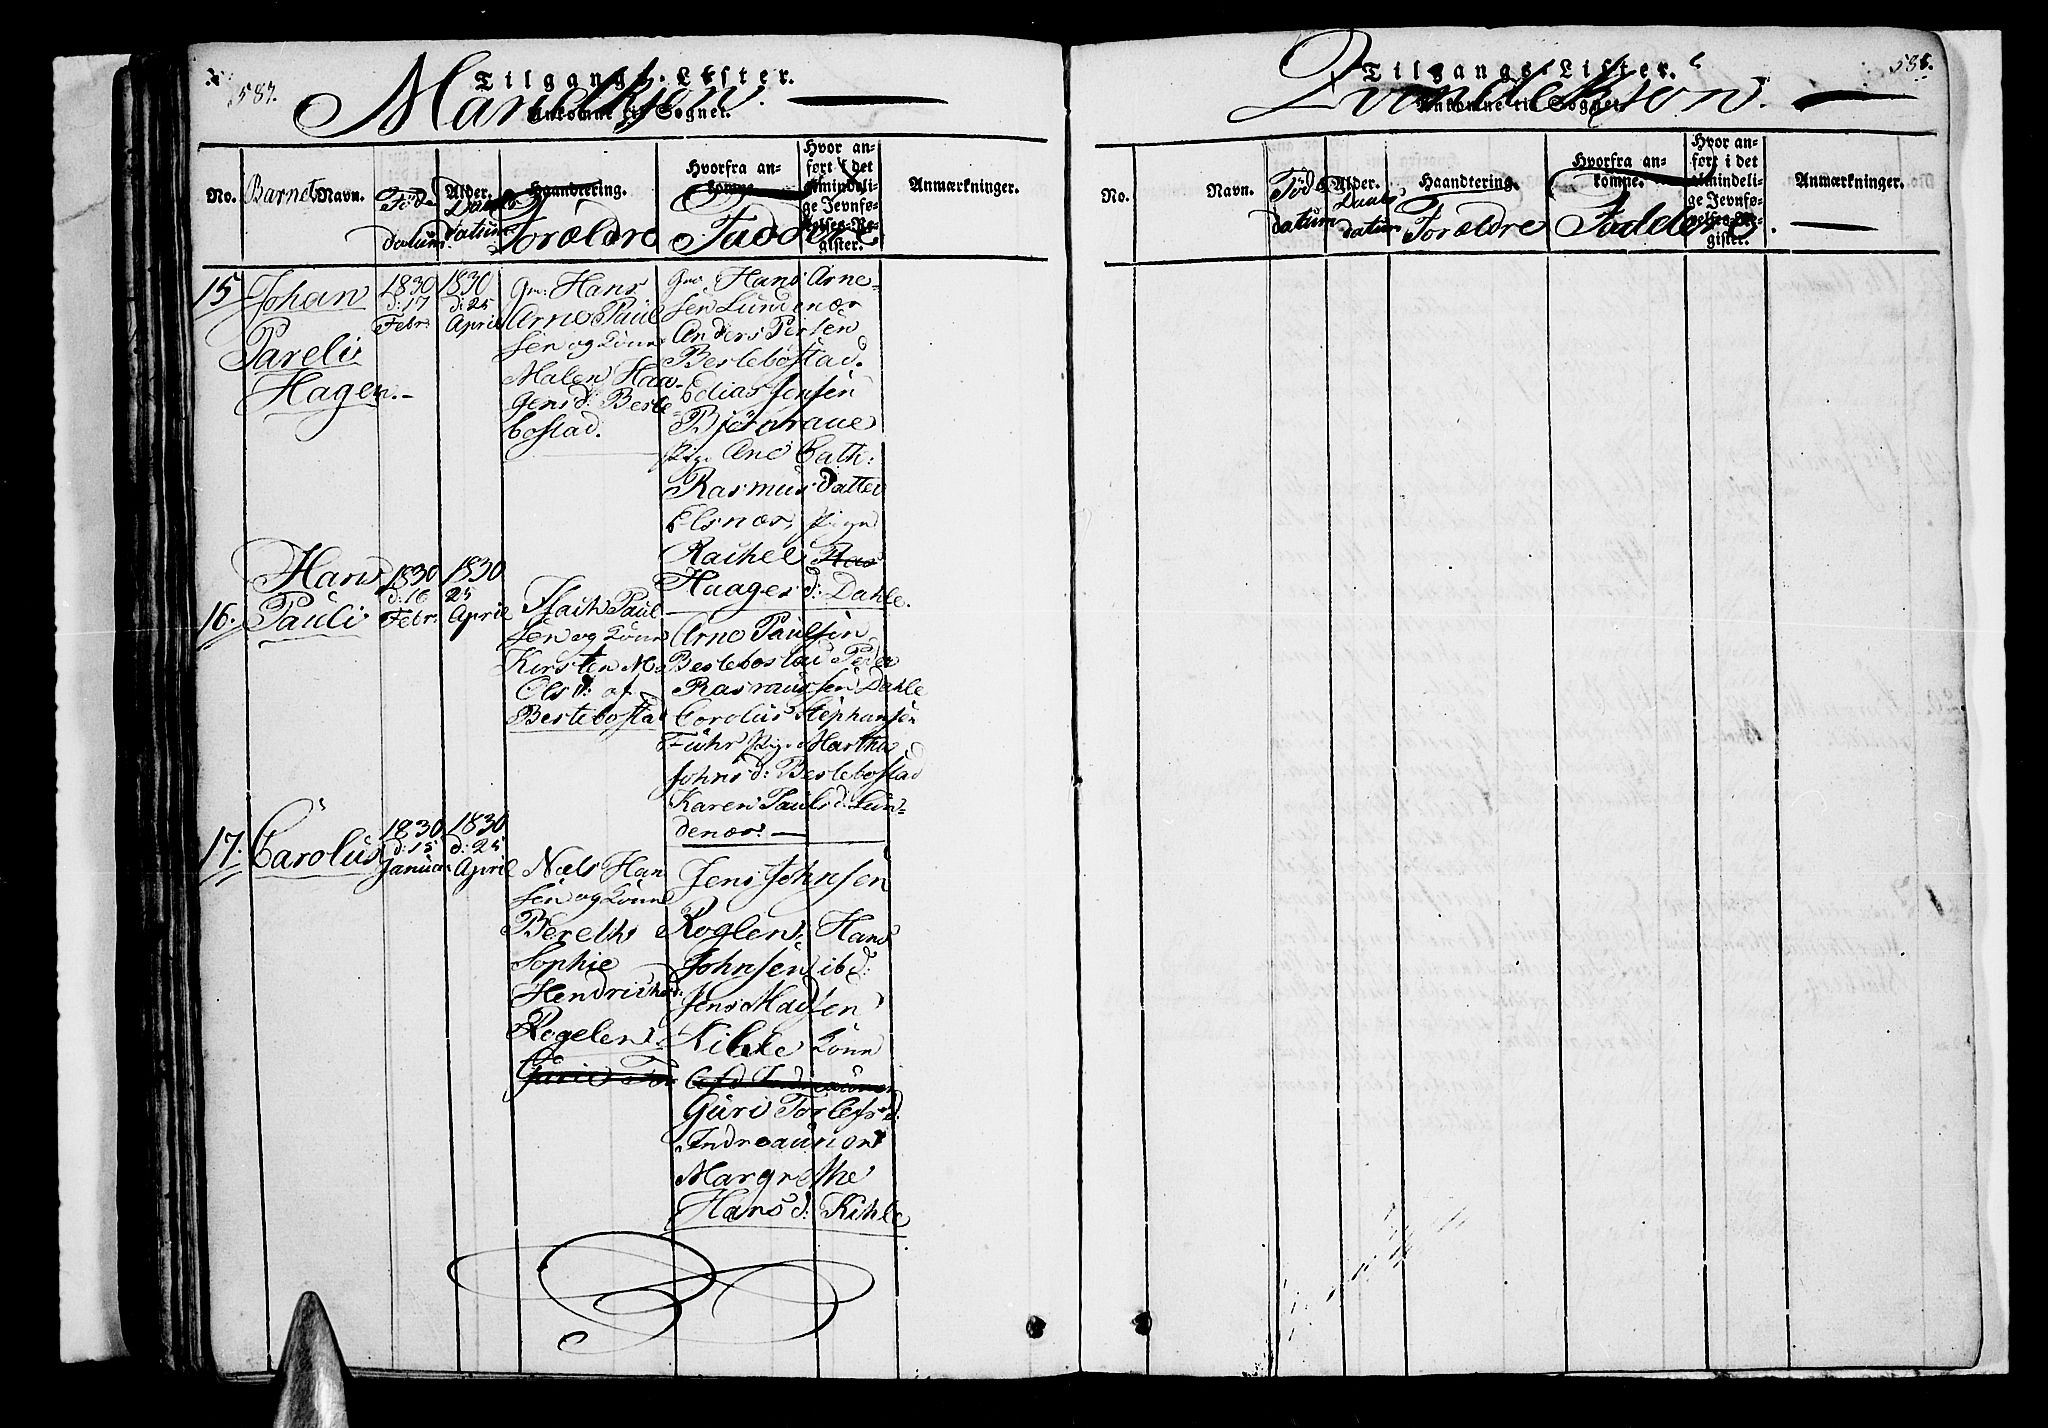 587.
Tilgangs-Lister.
Mandkjøn.
Ankomne til Sognet.
No.
Barnets Navn.
Föde datum.
Alder. Daabs datum
Haandtering. Forældre
Hvorfra ankomne. Faddere
Hvor anført i det almindelige Jevnførelses-Register.
Anmærkninger.
15 Johan
Pareli
Hagen.
1830
d: 17
Febr.
1830
d: 25
April
Gm: Hans
Arne Paul
sen og Kone
Malen Haa-
gensd: Besle
bostad.
Gm: Hans Arne-
sen Lundenær
Anders Persen
Beslebostad.
Elias Jensen
Björnraae
Pige Ane Cath:
Rasmusdatter
Elsnær, Pige
Rachel Ras
Haagensd: Dahle.
16. Hans
Pauli
1830
d: 16
Febr.
1830
25
April
Isach Paul
sen og Kone
Kirsten M.
Olsd: af
Beslebostad
Arne Paulsen
Beslebostad Peder
Rasmussen Dahle
Corolus Stephansen
Führ Pige Martha
Johnsd: Beslebostad
Karen Paulsd: Lun-
denær. —
17. Carolus
1830
d: 15
Januar
1830
d: 25
April
Næls Han
sen og Kone
Bereth
Sophie
Hendrichsd:
Rogelen
Jens Johnsen
Roglen, Hans
Johnsen ibd:
Jens Madsen
Kihle Kone
Guri Torlefsd:
Indreaunen
Margrethe
Hansd: Kihle
588.
Tilgangs-Lister.
Qvindekjøn.
Ankomne til Sognet.
No.
Navn.
Föde datum
Alder. Daabs datum
Haandtering. Forældre
Hvorfra ankomne. Faddere.
Hvor anført i det almindelige Jevnførelses-Register.
Anmærkninger.